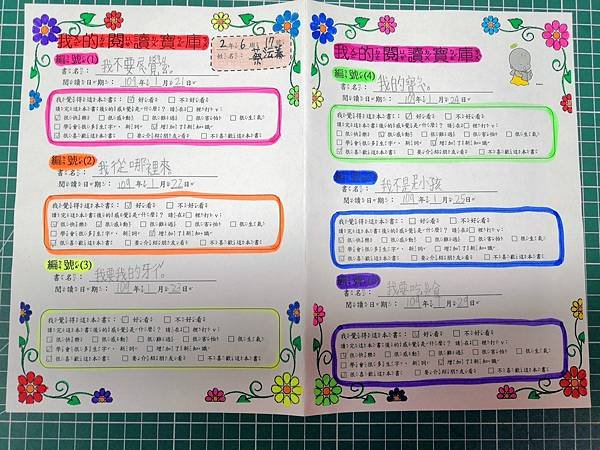 我的閱讀寶庫
2年6班17號
姓名:
編號(1)
書名:我不要尿覺
閱讀日期:109年1月21日
我覺得這本書: ☑好看 □不好看
讀完這本書後的感覺是什麼?請在□裡打v:
□很快樂 □很感動 □很難過 □很害怕 □很生氣
□學會很多生字、新詞 ☑增加了新知識
☑很喜歡這本書 □要介紹朋友看 □不喜歡這本書
編號(2)
書名:我從哪裡來
閱讀日期:109年1月22日
我覺得這本書: ☑好看 □不好看
讀完這本書後的感覺是什麼?請在□裡打v:
☑很快樂 □很感動 □很難過 □很害怕 □很生氣
□學會很多生字、新詞 ☑增加了新知識
□很喜歡這本書 □要介紹朋友看 □不喜歡這本書
編號(3)
書名:我要我的牙仔
閱讀日期:109年1月23日
我覺得這本書: ☑好看 □不好看
讀完這本書後的感覺是什麼?請在□裡打v:
☑很快樂 □很感動 □很難過 □很害怕 □很生氣
□學會很多生字、新詞 □增加了新知識
☑很喜歡這本書 □要介紹朋友看 □不喜歡這本書
我的閱讀寶庫
編號(4)
書名:我的寶
閱讀日期:109年1月24日
我覺得這本書: ☑好看 □不好看
讀完這本書後的感覺是什麼?請在□裡打v:
☑很快樂 □很感動 □很難過 □很害怕 □很生氣
□學會很多生字、新詞 □增加了新知識
☑很喜歡這本書 □要介紹朋友看 □不喜歡這本書
書名:我不是小孩
閱讀日期:109年1月25日
我覺得這本書: ☑好看 □不好看
讀完這本書後的感覺是什麼?請在□裡打v:
☑很快樂 □很感動 □很難過 □很害怕 □很生氣
□學會很多生字、新詞 □增加了新知識
☑很喜歡這本書 □要介紹朋友看 □不喜歡這本書
書名:我要吃
閱讀日期:109年1月29日
我覺得這本書: ☑好看 □不好看
讀完這本書後的感覺是什麼?請在□裡打v:
☑很快樂 □很感動 □很難過 □很害怕 □很生氣
□學會很多生字、新詞 □增加了新知識
☑很喜歡這本書 □要介紹朋友看 □不喜歡這本書